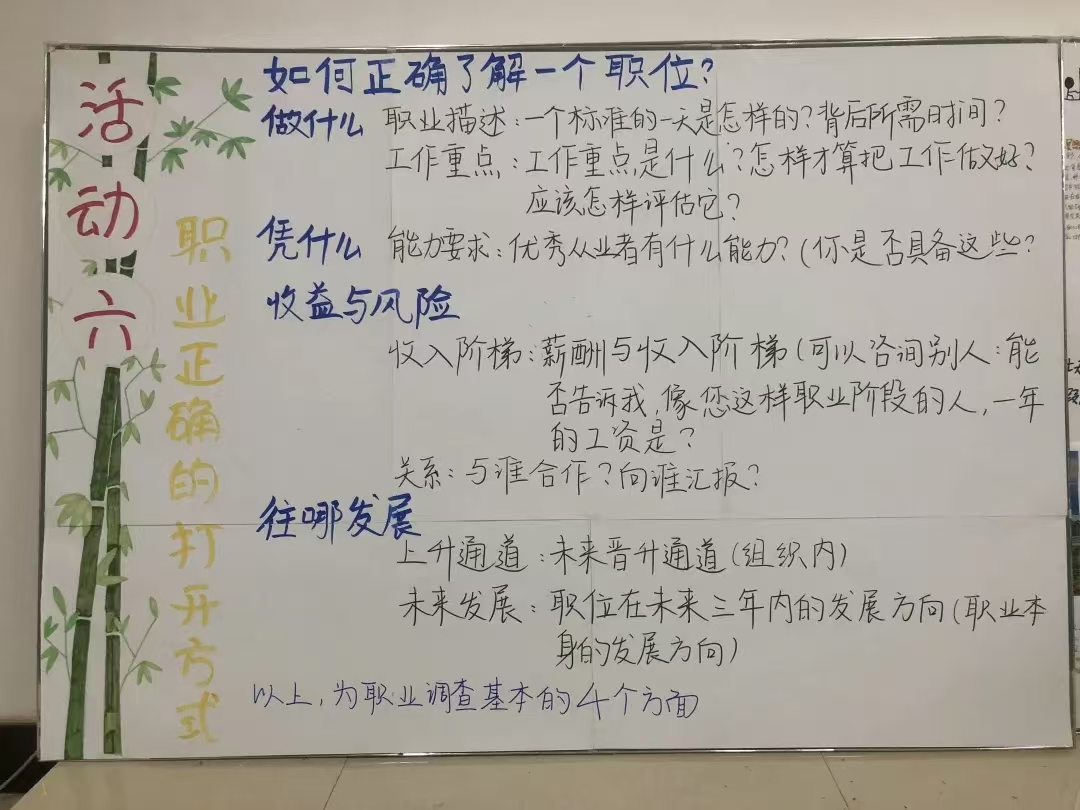 活动六
职业正确的打开方式
如何正确了解一个职位？
做什么 职业描述：一个标准的一天是怎样的？背后所需时间？
工作重点：工作重点是什么？怎样才算把工作做好？
应该怎样评估它？
凭什么 能力要求：优秀从业者有什么能力？（你是否具备这些？
收益与风险
收入阶梯：薪酬与收入阶梯（可以咨询别人：能
否告诉我，像您这样职业阶段的人，一年
的工资是？
关系：与谁合作？向谁汇报？
往哪发展
上升通道：未来晋升通道（组织内）
未来发展：职位在未来三年内的发展方向（职业本
身的发展方向）
以上，为职业调查基本的4个方面